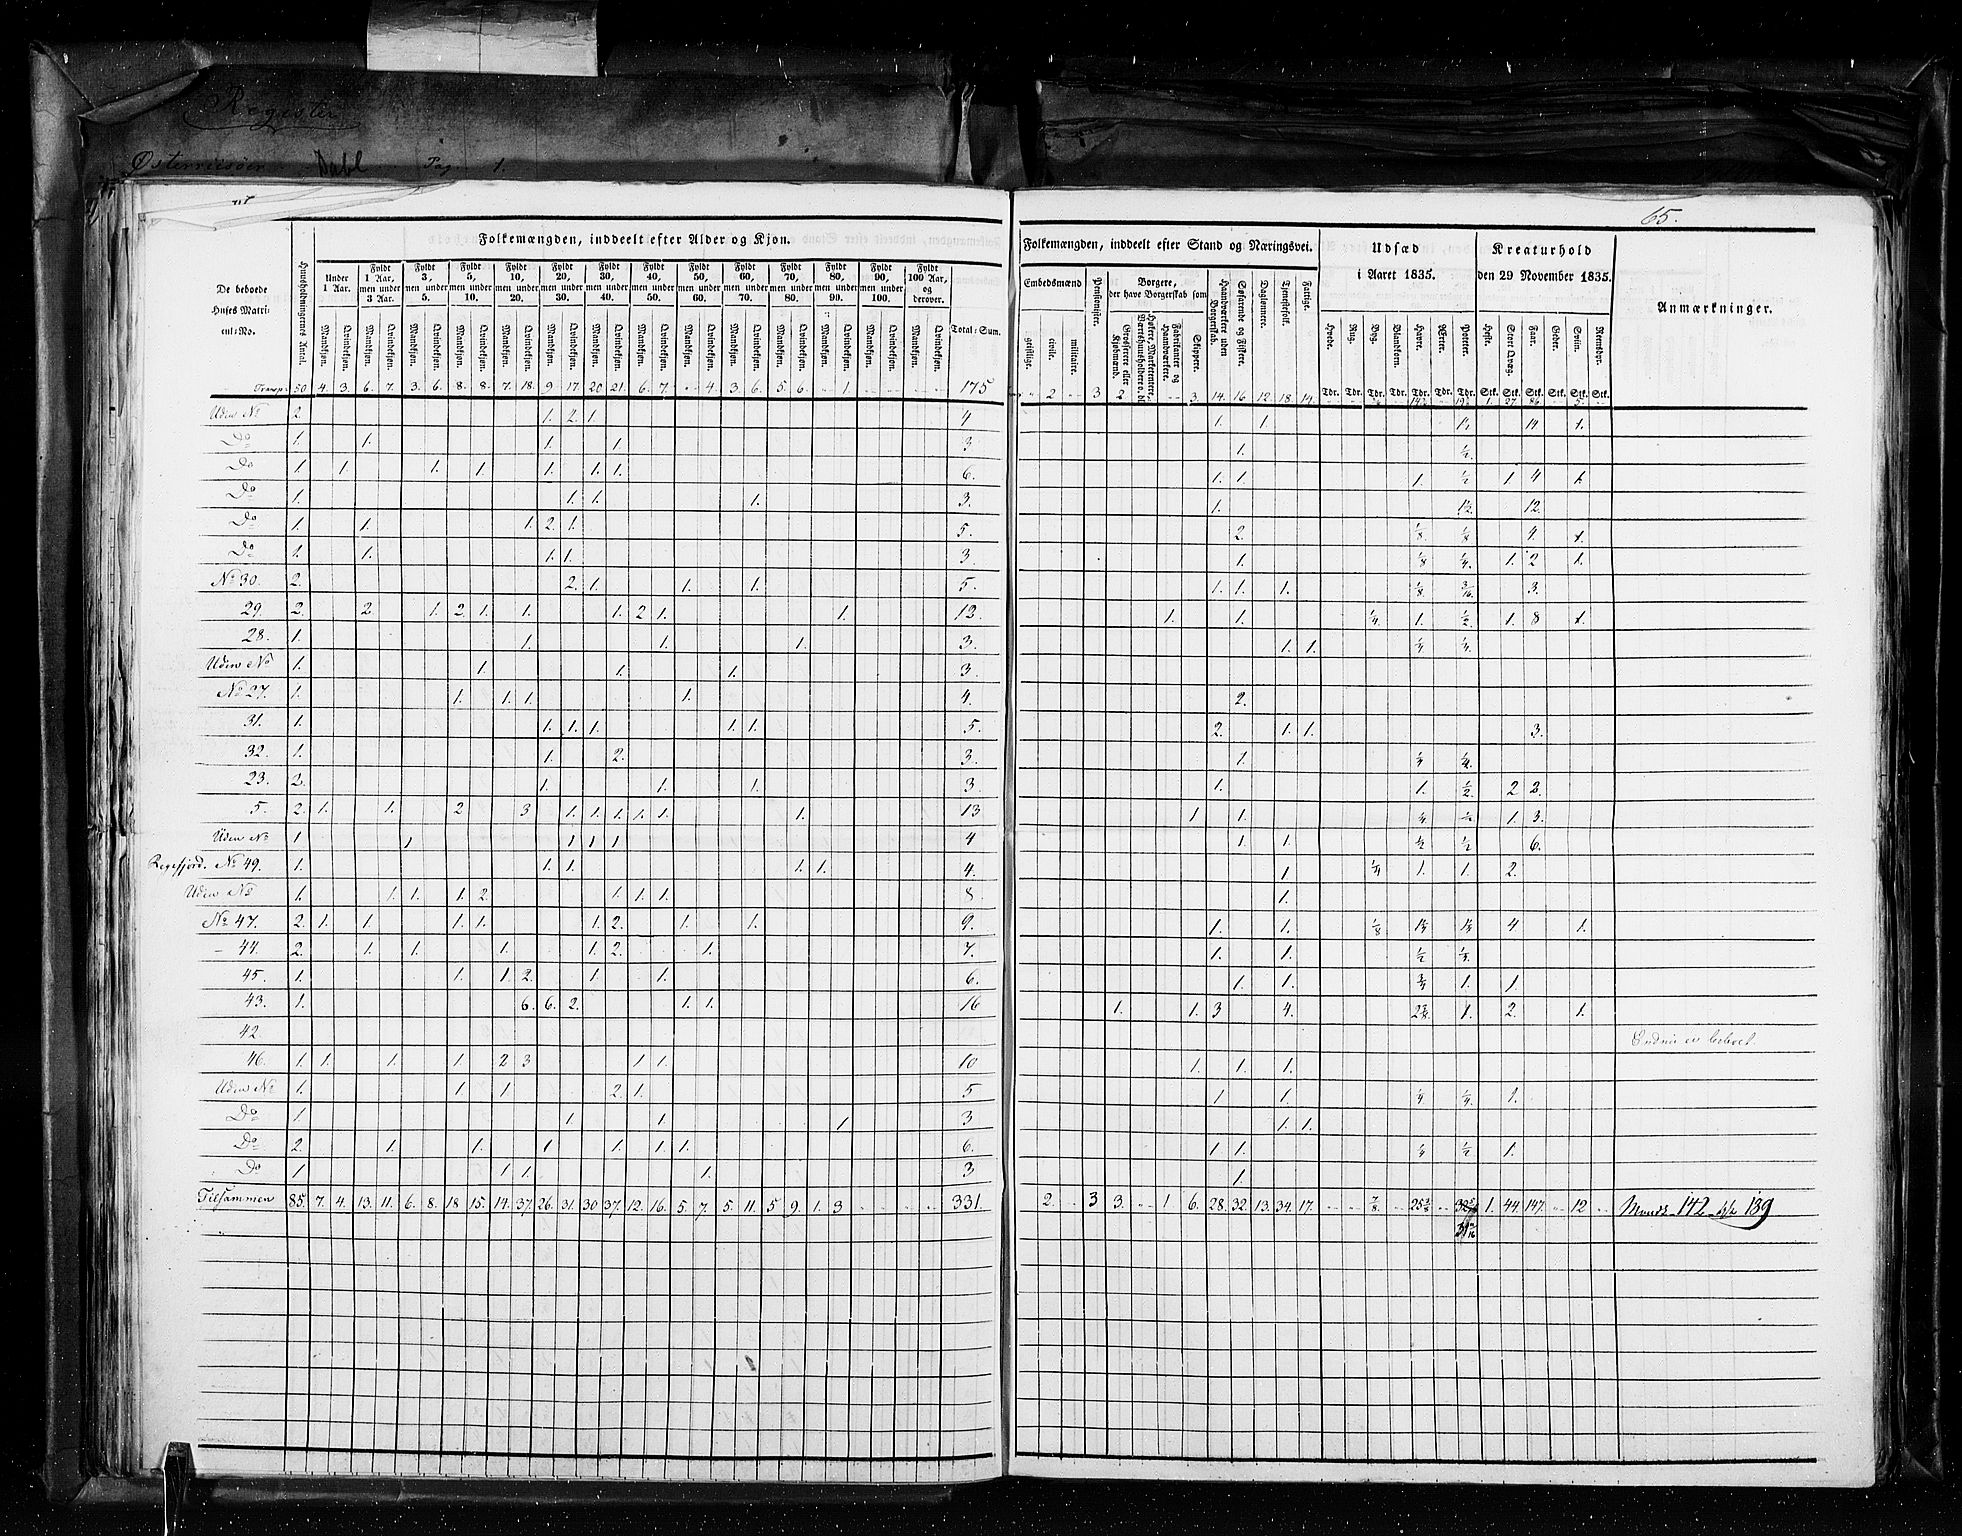 Register
Østerriisöer Dahl Pag. 1.
65.
Folkemængden, inddeelt efter Alder og Kjøn.
Folkemængden, inddeelt efter Stand og Næringsvei.
Udsæd i Aaret 1835.
Kreaturhold den 29 November 1835.
Anmærkninger.
De beboede Huses Matricul-No.
Huusholdningernes Antal.
Under 1 Aar.
Fyldt 1 Aar, men under 3 Aar.
Fyldt 3, men under 5.
Fyldt 5, men under 10.
Fyldt 10, men under 20.
Fyldt 20, men under 30.
Fyldt 30, men under 40.
Fyldt 40, men under 50.
Fyldt 50, men under 60.
Fyldt 60, men under 70.
Fyldt 70, men under 80.
Fyldt 80, men under 90.
Fyldt 90, men under 100.
Fyldt 100 Aar, og derover.
Mandkjøn. Qvindekjøn.
Total-Sum.
Embedsmænd
geistlige. civile. militaire.
Pensionister.
Borgere, der have Borgerskab som
Grosserere eller Kjøbmænd.
Høkere, Marketentere, Værtshuusholdere o. dl.
Fabrikanter og Haandværkere.
Skippere.
Haandværkere uden Borgerskab.
Søfarende og Fiskere.
Daglønnere.
Tjenestefolk.
Fattige.
Hvede. Rug. Byg. Blandkorn. Havre. Ærter. Poteter.
Heste. Stort Qvæg. Faar. Geder. Sviin. Reensdyr.
Tdr. Tdr. Tdr. Tdr. Tdr. Tdr. Tdr. Stk. Stk. Stk. Stk. Stk. Stk.
Transp: 50 4. 3. 6. 7. 3. 6. 8. 8. 7. 18. 9. 17. 20. 21. 6. 7. 4. 3. 6. 5. 6. 1. 175 2 3 2 3. 14. 16. 12. 18. 14. 1. 27. 86. 5.
Uden No 2. 1. 2. 1. 4 1. 1. 14 1.
Do 1. 1. 1. 1. 3 1. ½
Do 1. 1. 1. 1. 1. 1. 1. 6. 1. 1. 1. ½ 1 4 1.
Do 1. 1. 1. 1. 3. 1. 1½ 12.
Do 1. 1. 1. 2. 1. 5. 2. ⅛ ⅛ 4. 1.
Do 1. 1. 1. 1. 3. 1. ⅛ ¼ 1. 2 1.
No 30. 2. 2. 1. 1. 1. 5. 1. 1. 1. ⅛ 3/16 3.
29. 2. 2. 1. 2. 1. 1. 1. 2 1. 1. 13. 1. 1. ¼ 1. ½ 1. 8 1.
28. 1. 1. 1. 1. 3. 1. 1. ¼ ¼
Uden No 1. 1. 1. 1. 3
No 27. 1. 1. 1. 1. 1. 4. 2.
31. 1. 1. 1. 1. 1. 1. 5. 2. 1. 1. 3.
32. 1. 1. 2. 3. 1. ¼ ¼
23. 2. 1. 1. 1. 3 1. 1. ½ 2 2.
5. 2. 1. 1. 2 3 1. 1. 1. 1. 1. 1. 13 1 1. 1. 3.
Uden No 1. 1 1 1 1 4 1. 1. ½ ½ 6.
No 49. 1. 1. 1. 1. 1. 4. 1 ¼ 1. 1. 2.
Uden No 1. 1. 1. 1. 2. 1. 1. 1. 8 1.
No 47. 2. 1. 1. 1. 1. 1. 2. 1. 1. 9. 1. 1. ⅛ 4 1.
44. 2. 1. 1. 1. 1. 2. 1. 7. 1. 1. ½
45. 1. 1. 1. 2. 1. 1. 6. 1. 1. ¾ 1. 1.
43. 1. 6. 6. 2. 1. 1. 16 1. 1. 3 4. 1. 2. 1.
42.
46. 1. 1. 1. 1. 2 3 1 1. 10 1. 1. 1.
Uden No 1. 1 1 2 1. 5 1 1. ¼ ¼ 1.
Do 1 1. 1. 1 3 1. 1.
Do 2. 1. 1. 1 1. 1. 1. 6. 1 1. ¼ ½ 1.
Do 1 1 1. 1. 3 1.
Tilsammen 85. 7. 4. 13. 11. 6. 8. 18 15. 14. 37. 26. 31. 30 37. 12. 16. 5. 7. 5. 11. 5 9. 1. 3 331. 2. 3 3. 1 6. 28. 32. 13. 34. 17. ⅞ 1. 44. 147. 12 142 139